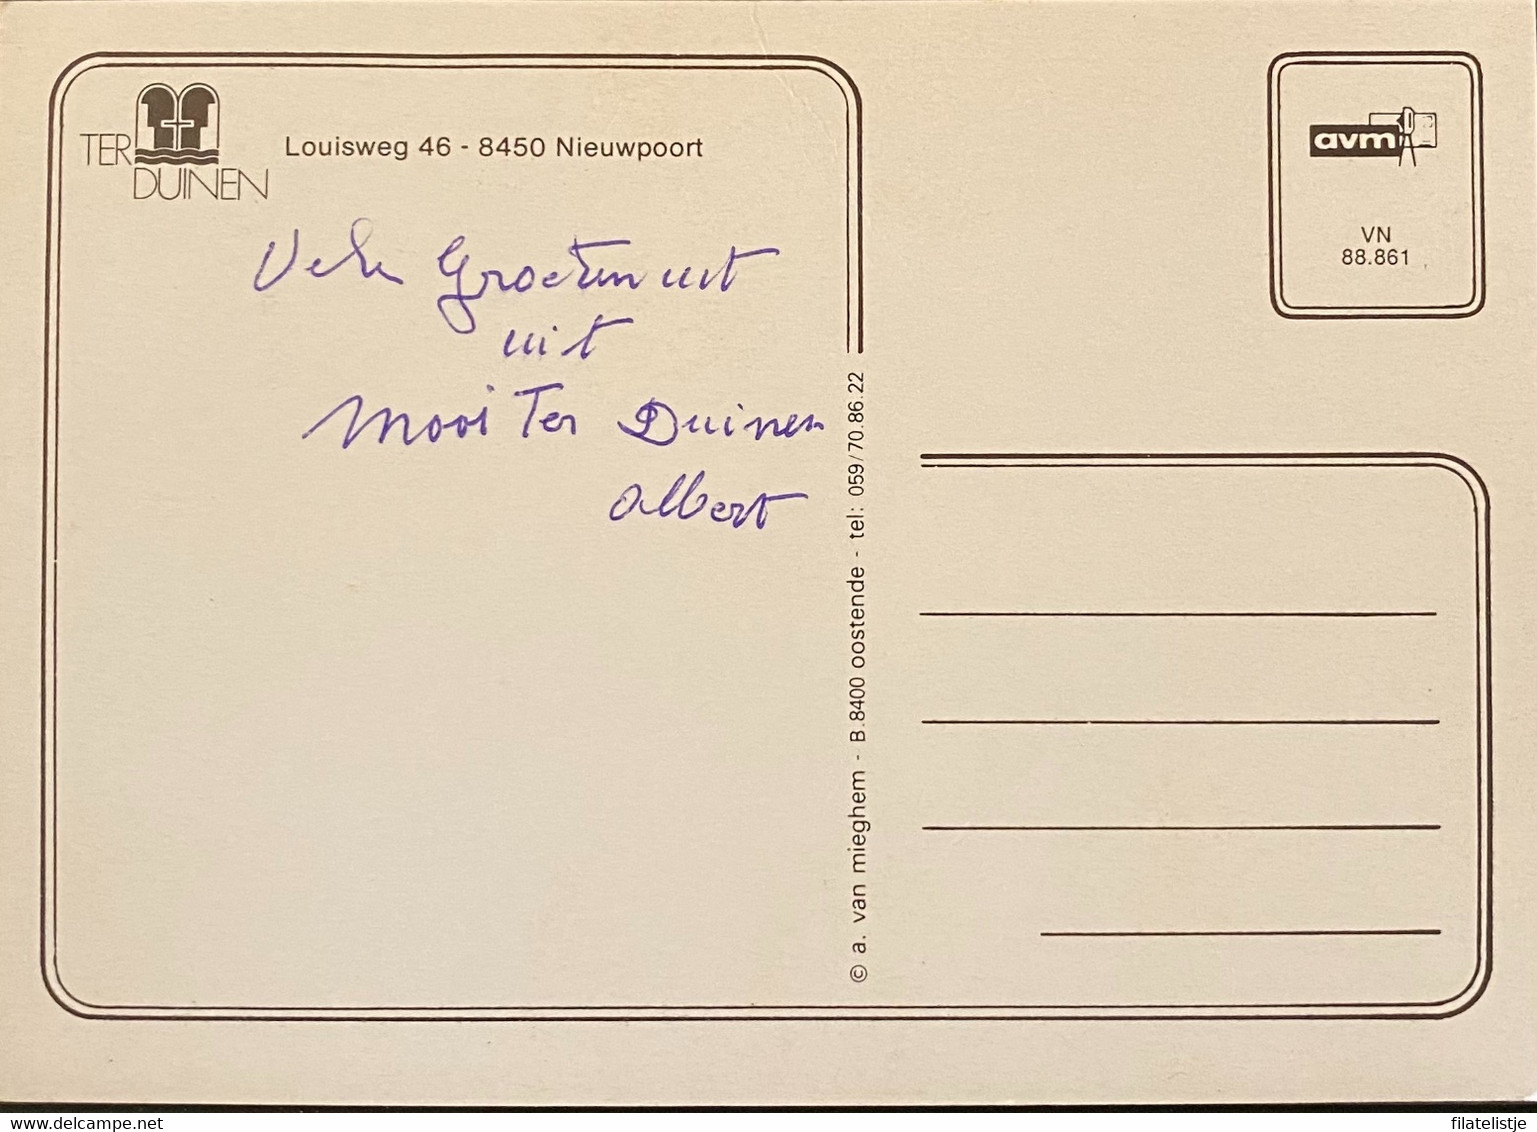 TER
DUINEN
Louisweg 46 - 8450 Nieuwpoort
Vele Groeten uit
uit
Mooi Ter Duinen
Albert
© a. van mieghem - B.8400 oostende - tel: 059/70.86.22
avm
VN
88.861
delcampe.net
filatelistje